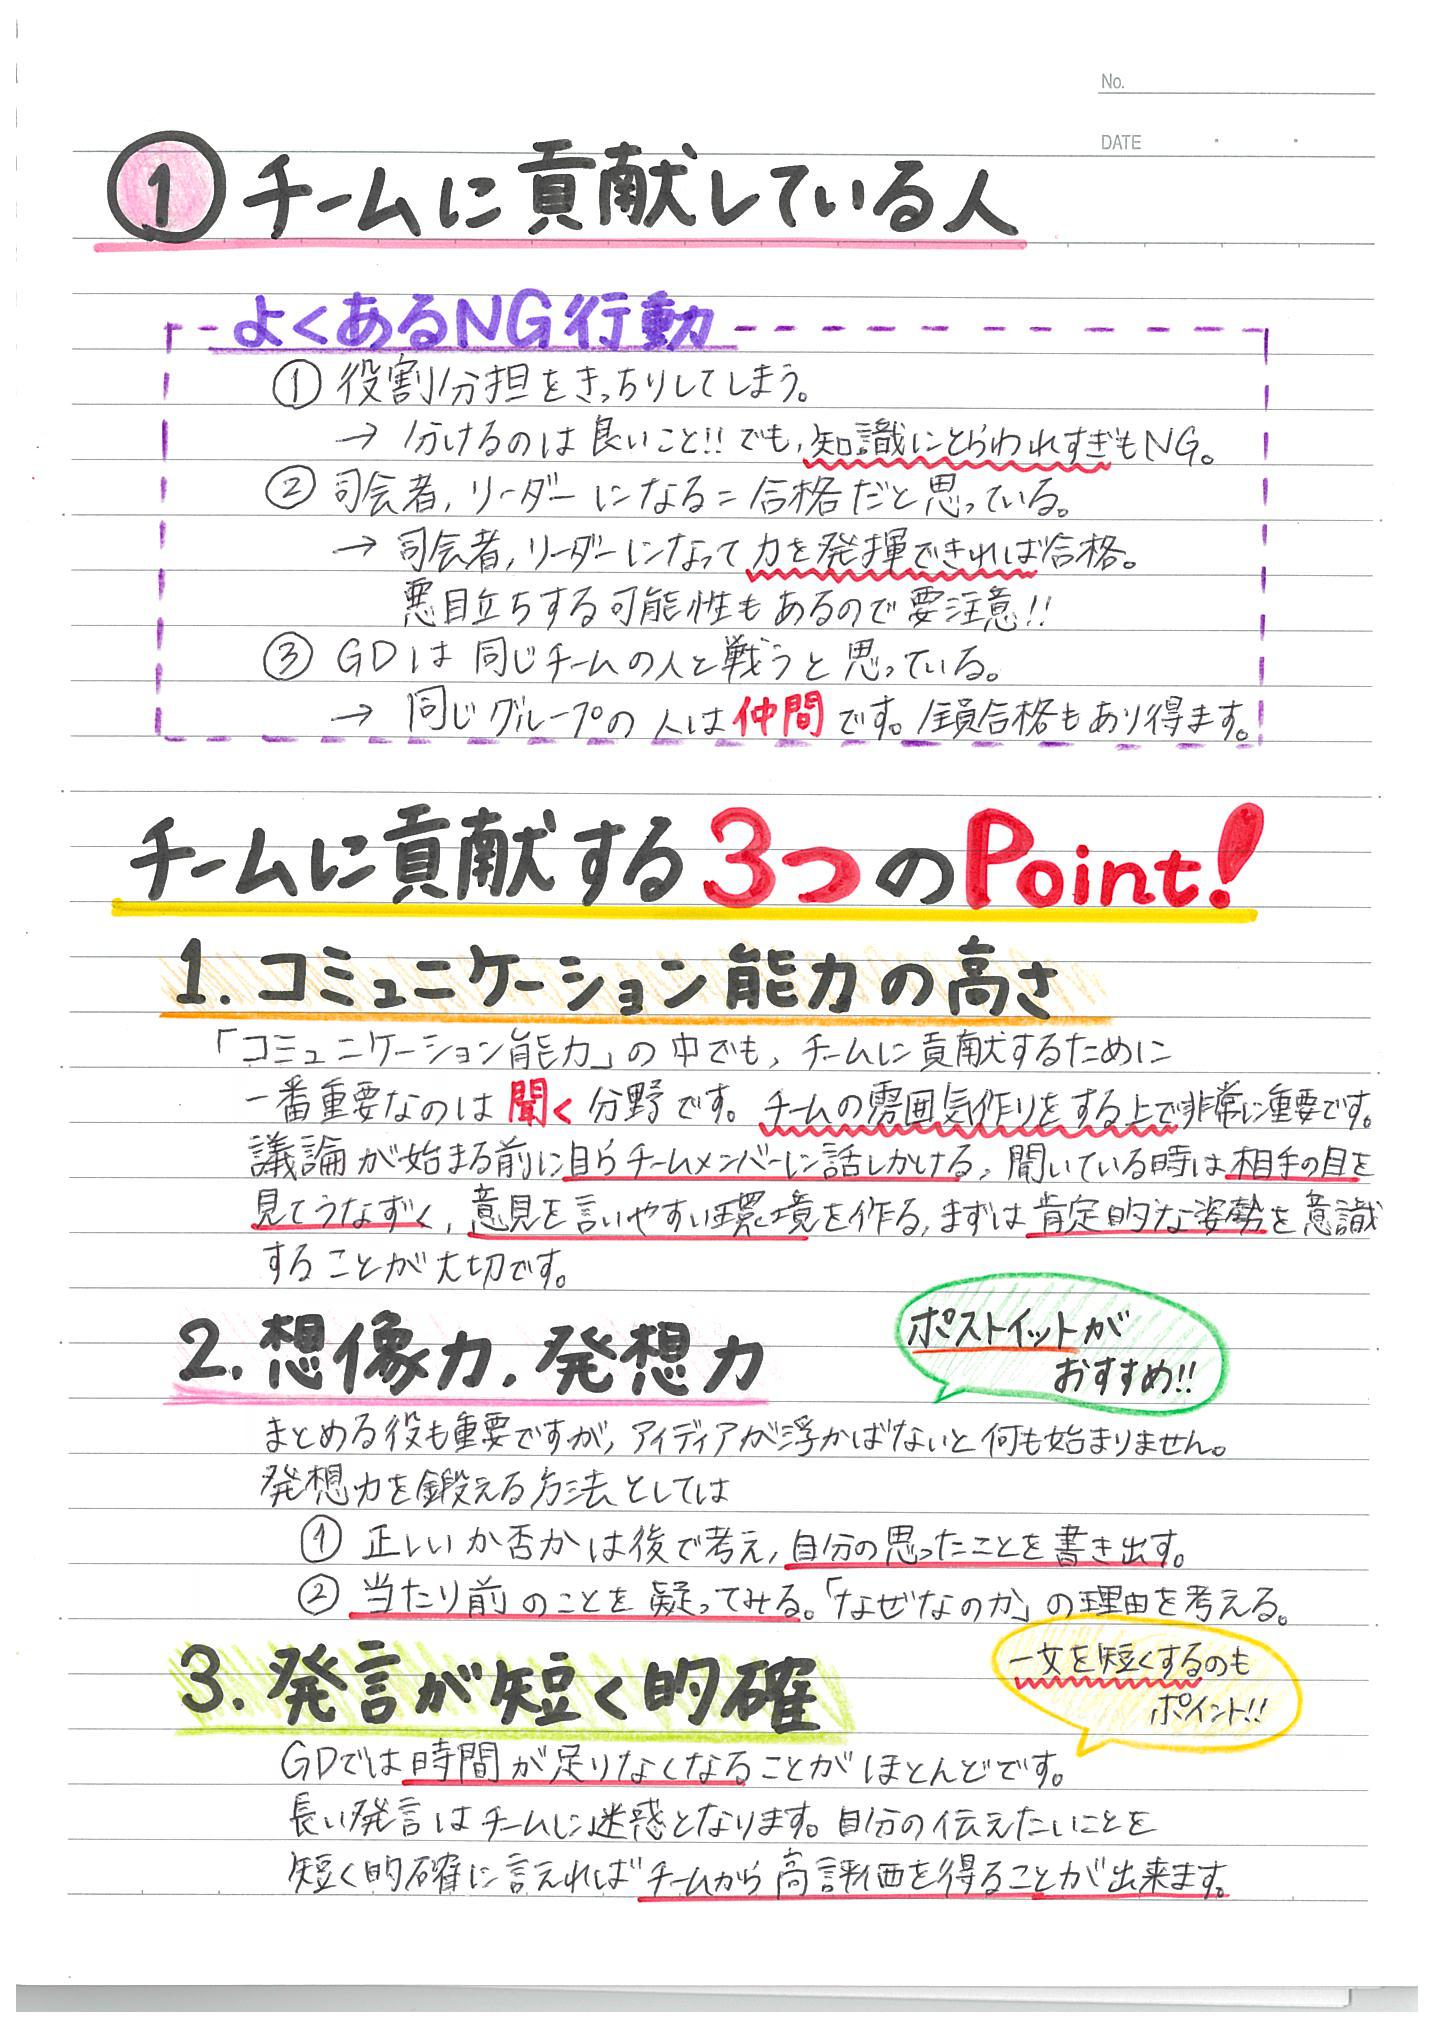 No.
DATE
① チームに貢献している人
よくあるNG行動
① 役割分担をきっちりしてしまう。
→ 分けるのは良いこと!! でも、知識にとらわれすぎもNG。
② 司会者, リーダーになる=合格だと思っている。
→ 司会者, リーダーになって力を発揮できれば合格。
悪目立ちする可能性もあるので要注意!!
③ GDは同じチームの人と戦うと思っている。
→ 同じグループの人は仲間です。全員合格もあり得ます。
チームに貢献する3つのPoint!
1. コミュニケーション能力の高さ
「コミュニケーション能力」の中でも, チームに貢献するために
一番重要なのは聞く分野です。チームの雰囲気作りをする上で非常に重要です。
議論が始まる前に自らチームメンバーに話しかける, 聞いている時は相手の目を
見てうなずく, 意見を言いやすい環境を作る, まずは肯定的な姿勢を意識
することが大切です。
2. 想像力, 発想力
ポストイットが
おすすめ!!
まとめる役も重要ですが, アイディアが浮かばないと何も始まりません。
発想力を鍛える方法としては
① 正しいか否かは後で考え, 自分の思ったことを書き出す。
② 当たり前のことを疑ってみる。「なぜなのか」の理由を考える。
3. 発言が短く的確
一文を短くするのも
ポイント!!
GDでは時間が足りなくなることがほとんどです。
長い発言はチームに迷惑となります。自分の伝えたいことを
短く的確に言えればチームから高評価を得ることが出来ます。